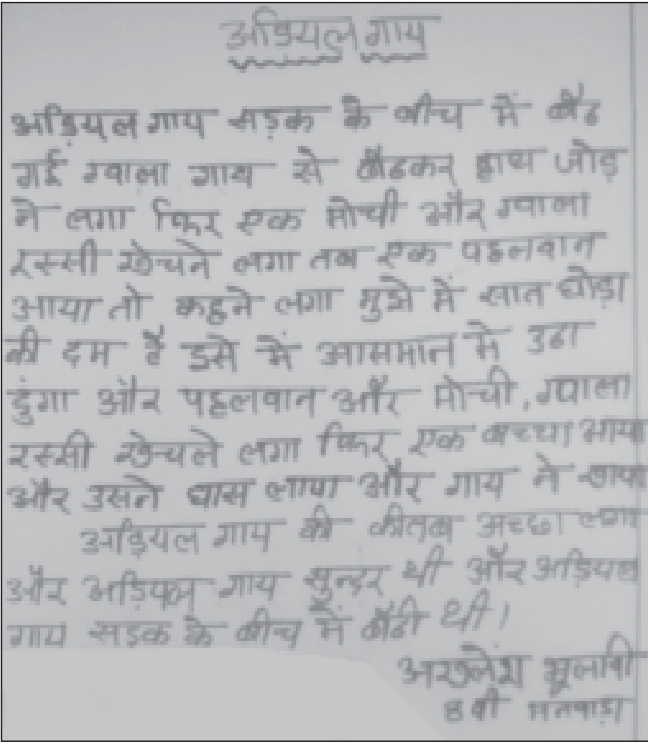 अडियल गाय
अड़ियल गाय सड़क के बीच में बैठ
गई ग्वाला गाय से बैठकर हाथ जोड़
ने लगा फिर एक मोची और ग्वाला
रस्सी खेचने लगा तब एक पहलवान
आया तो कहने लगा मुझे में सात घोड़ा
की दम है इसे में आसमान मे उठा
दुंगा और पहलवान और मोची, ग्वाला
रस्सी खेचले लगा फिर एक बच्चा आया
और उसने घास लाया और गाय ने खाया
अड़ियल गाय की कीतब अच्छा लगा
और अड़ियल गाय सुन्दर थी और अड़ियल
गाय सड़क के बीच में बैठी थी।
8 वी